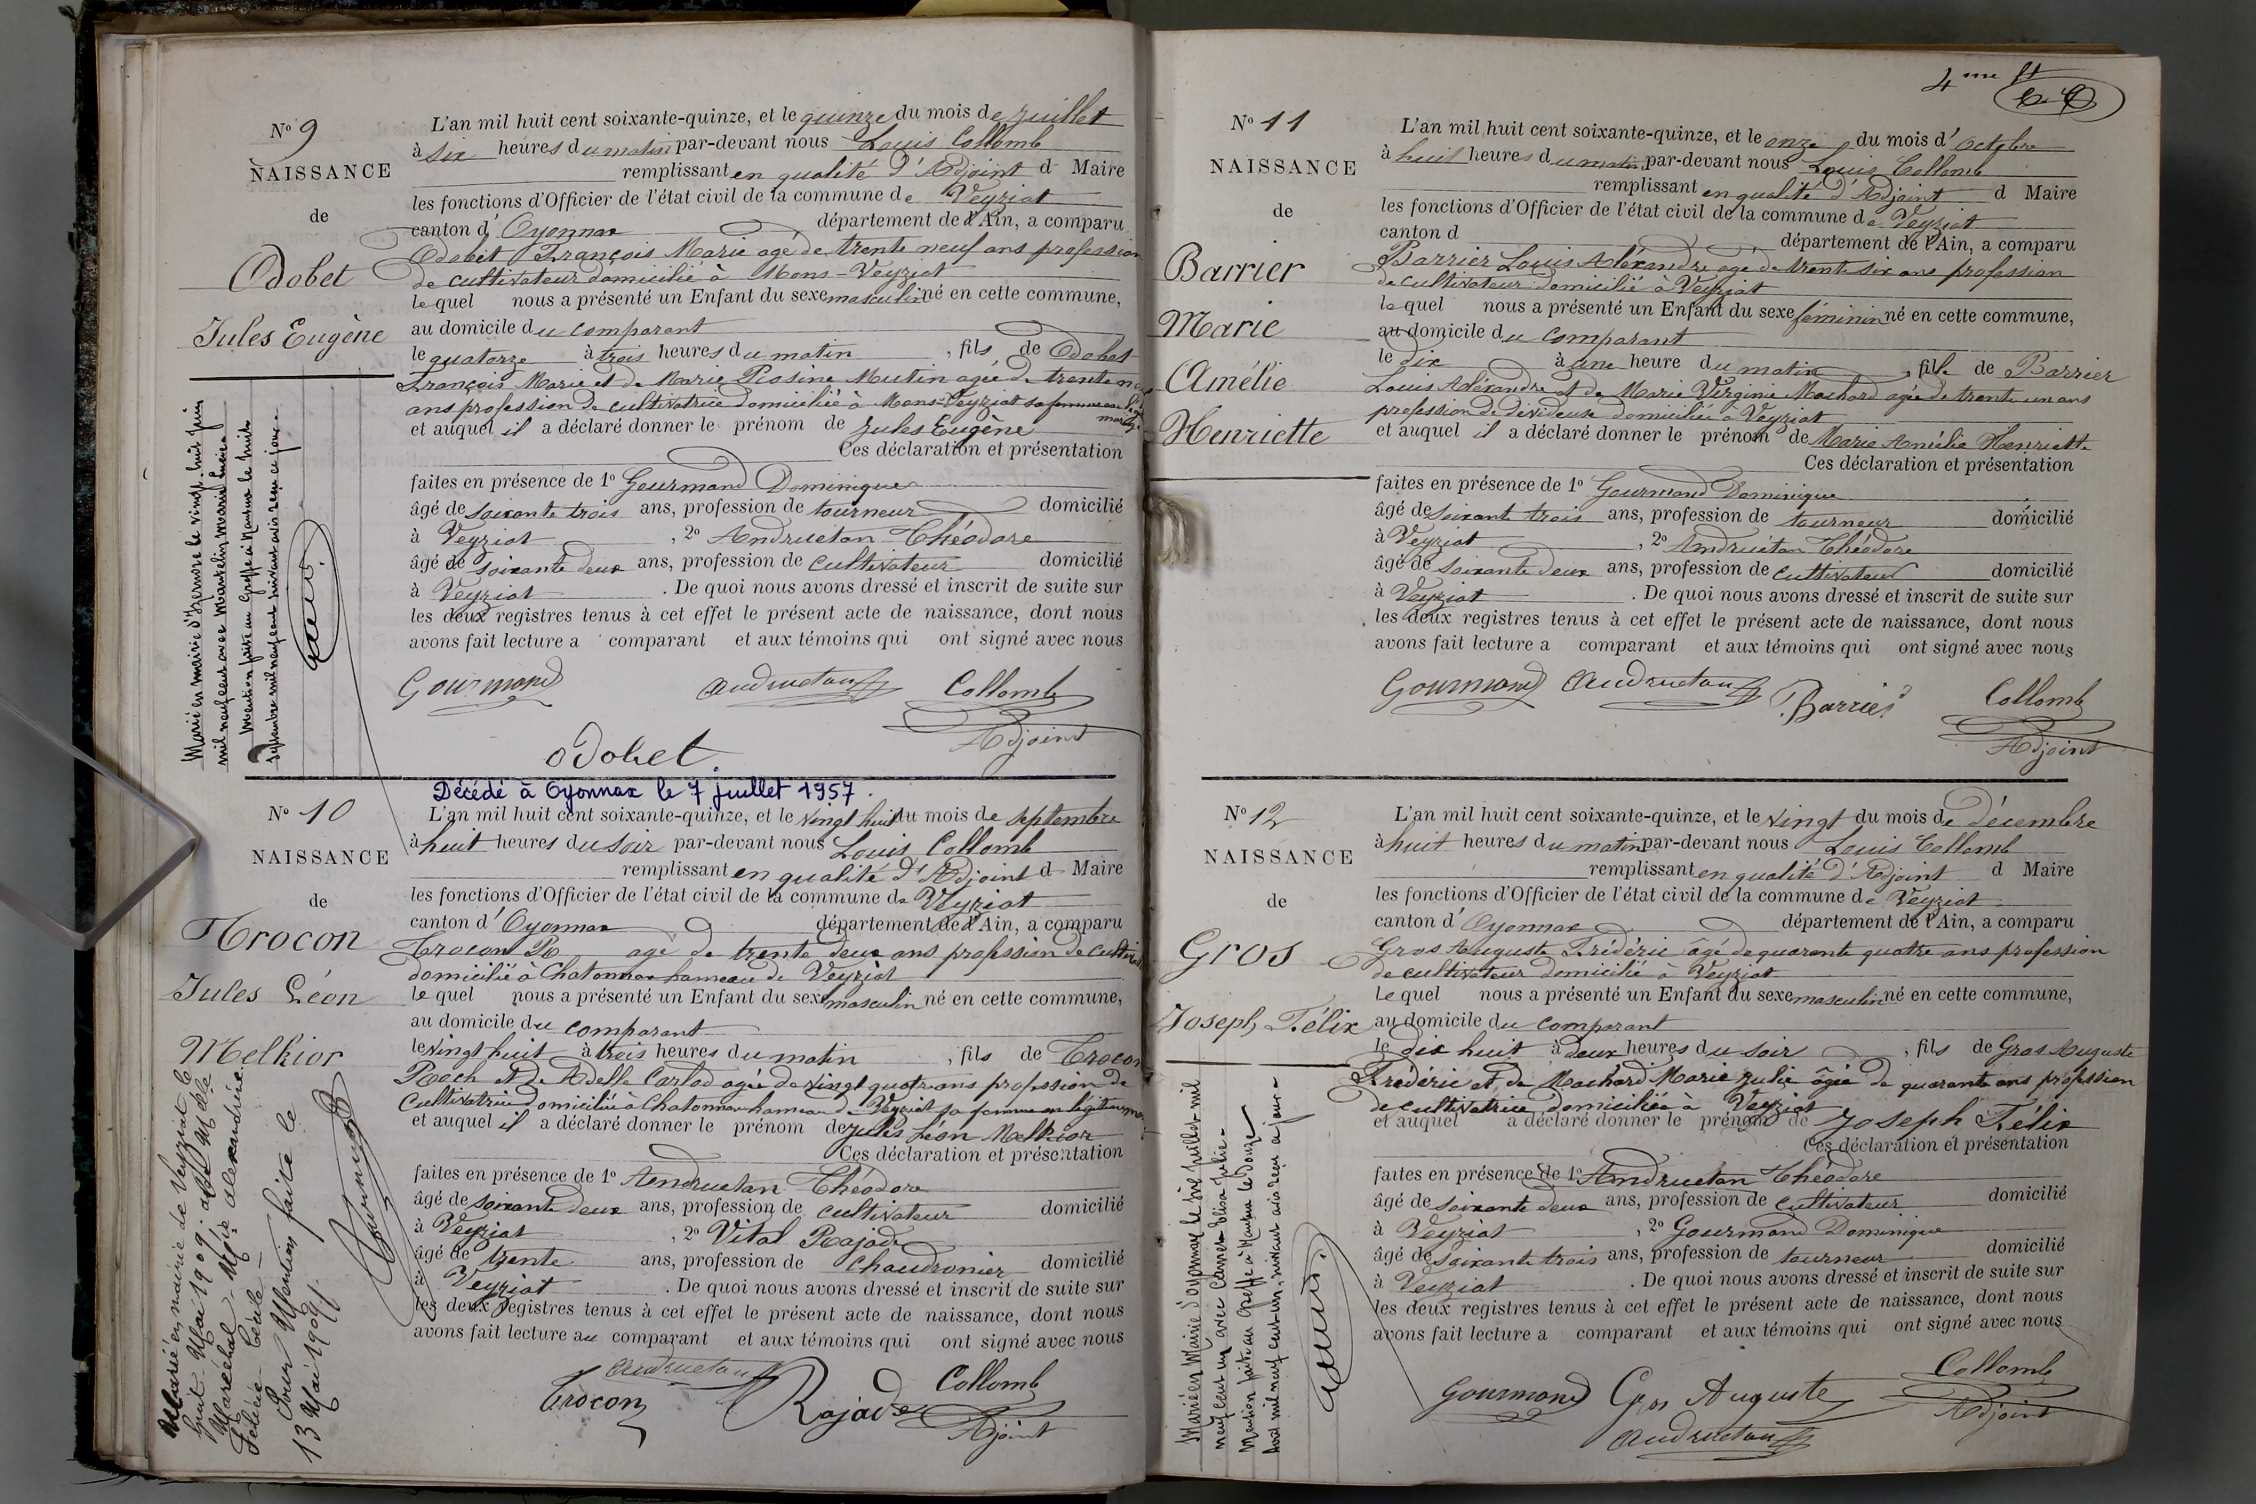 Nº 9
NAISSANCE
de
Odobet
Jules Eugène
L'an mil huit cent soixante-quinze, et le quinze du mois de juillet
à six heures du matin par-devant nous Louis Collomb
remplissant en qualité d'Adjoint d Maire
les fonctions d'Officier de l'état civil de la commune de Veyziat
canton d'Oyonnax département de l'Ain, a comparu
Odobet François Marie agé de trente neuf ans profession
de cultivateur domicilié à Mons-Veyziat
lequel nous a présenté un Enfant du sexe masculin né en cette commune,
au domicile du comparant
le quatorze à trois heures du matin, fils de Odobet
François Marie et de Marie Rosine Mutin agée de trente
ans profession de cultivatrice domiciliée à Mons-Veyziat sa femme
et auquel il a déclaré donner le prénom de Jules Eugène
Ces déclaration et présentation
faites en présence de 1º Gourmand Dominique
âgé de soixante trois ans, profession de tourneur domicilié
à Veyziat, 2º Andruetan Théodore
âgé de soixante deux ans, profession de cultivateur domicilié
à Veyziat. De quoi nous avons dressé et inscrit de suite sur
les deux registres tenus à cet effet le présent acte de naissance, dont nous
avons fait lecture a comparant et aux témoins qui ont signé avec nous
Gourmand Andruetan Collomb
Adjoint
Odobet
Marié en mairie d'Izernore le vingt huit juin
mil neuf cent avec Marie Louise
Mention faite au Greffe à Nantua le huit
septembre mil neuf cent suivant avis reçu ce jour
Décédé à Oyonnax le 7 juillet 1957.
Nº 10
NAISSANCE
de
Trocon
Jules Léon
Melkior
L'an mil huit cent soixante-quinze, et le vingt huit du mois de septembre
à huit heures du soir par-devant nous Louis Collomb
remplissant en qualité d'Adjoint d Maire
les fonctions d'Officier de l'état civil de la commune de Veyziat
canton d'Oyonnax département de l'Ain, a comparu
Trocon R agé de trente deux ans profession de
domicilié à Chatonnax hameau de Veyziat
lequel nous a présenté un Enfant du sexe masculin né en cette commune,
au domicile du comparant
le vingt huit à trois heures du matin, fils de Trocon
Roch et de Adelle Carlod agée de vingt quatre ans profession de
cultivatrice domiciliée à Chatonnax hameau de Veyziat sa femme en légitime
et auquel il a déclaré donner le prénom de Jules Léon Melkior
Ces déclaration et présentation
faites en présence de 1º Andruetan Théodore
âgé de soixante deux ans, profession de cultivateur domicilié
à Veyziat, 2º Vital Rajade
âgé de trente ans, profession de chaudronier domicilié
à Veyziat. De quoi nous avons dressé et inscrit de suite sur
les deux registres tenus à cet effet le présent acte de naissance, dont nous
avons fait lecture au comparant et aux témoins qui ont signé avec nous
Andruetan
Trocon Rajade Collomb
Adjoint
Marié en mairie de Veyziat le
huit Mai 1909 avec
Maréchal Alexandrine
Félécie Cécile
Pour Mention faite le
13 Mai 1909
4me ft
Nº 11
NAISSANCE
de
Barrier
Marie
Amélie
Henriette
L'an mil huit cent soixante-quinze, et le onze du mois d'octobre
à huit heures du matin par-devant nous Louis Collomb
remplissant en qualité d'Adjoint d Maire
les fonctions d'Officier de l'état civil de la commune de Veyziat
canton d département de l'Ain, a comparu
Barrier Louis Alexandre agé de trente six ans profession
de cultivateur domicilié à Veyziat
lequel nous a présenté un Enfant du sexe féminin né en cette commune,
au domicile du comparant
le dix à une heure du matin, fille de Barrier
Louis Aléxandre et de Marie Virginie Machard agée de trente un ans
profession de dévideuse domiciliée à Veyziat
et auquel il a déclaré donner le prénom de Marie Amélie Henriette
Ces déclaration et présentation
faites en présence de 1º Gourmand Dominique
âgé de soixante trois ans, profession de tourneur domicilié
à Veyziat, 2º Andruétan Théodore
âgé de soixante deux ans, profession de cultivateur domicilié
à Veyziat. De quoi nous avons dressé et inscrit de suite sur
les deux registres tenus à cet effet le présent acte de naissance, dont nous
avons fait lecture a comparant et aux témoins qui ont signé avec nous
Gourmand Andruetan Barrier Collomb
Adjoint
Nº 12
NAISSANCE
de
Gros
Joseph Félix
L'an mil huit cent soixante-quinze, et le vingt du mois de décembre
à huit heures du matin par-devant nous Louis Collomb
remplissant en qualité d'Adjoint d Maire
les fonctions d'Officier de l'état civil de la commune de Veyziat
canton d'Oyonnax département de l'Ain, a comparu
Gros Auguste Frédéric âgé de quarante quatre ans profession
de cultivateur domicilié à Veyziat
lequel nous a présenté un Enfant du sexe masculin né en cette commune,
au domicile du comparant
le dix huit à deux heures du soir, fils de Gros Auguste
Frédéric et de Machard Marie Julie âgée de quarante ans profession
de cultivatrice domiciliée à Veyziat
et auquel a déclaré donner le prénom de Joseph Félix
Ces déclaration et présentation
faites en présence de 1º Andruetan Théodore
âgé de soixante deux ans, profession de cultivateur domicilié
à Veyziat, 2º Gourmand Dominique
âgé de soixante trois ans, profession de tourneur domicilié
à Veyziat. De quoi nous avons dressé et inscrit de suite sur
les deux registres tenus à cet effet le présent acte de naissance, dont nous
avons fait lecture a comparant et aux témoins qui ont signé avec nous
Gourmand Gros Auguste Collomb
Adjoint
Andruetan
Marié en Mairie d'Oyonnax le six juillet mil
neuf cent un avec Elisa Julie
Mention faite au Greffe à Nantua le douze
Août mil neuf cent un, suivant avis reçu ce jour